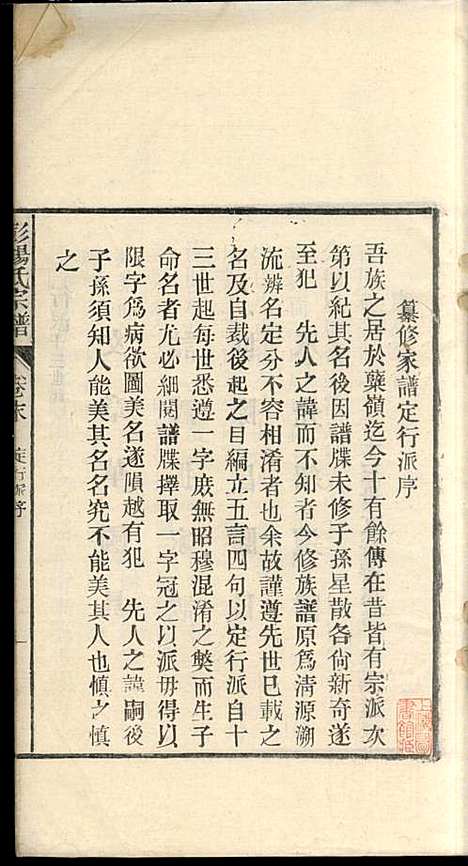 纂修家譜定行派序
吾族之居於藥嶺迄今十有餘傳在昔皆有宗派次
第以紀其名後因譜牒未修子孫星散各尙新奇遂
至犯　先人之諱而不知者今修族譜原爲清源溯
流辨名定分不容相淆者也余故謹遵先世已載之
名及自裁後起之目編立五言四句以定行派自十
三世起每世悉遵一字庶無昭穆混淆之獘而生子
命名者尤必細閱譜牒擇取一字冠之以派毋得以
限字爲病欲圖美名遂隕越有犯　先人之諱嗣後
子孫須知人能美其名名究不能美其人也愼之愼
之
彭楊氏宗譜
卷末
定行派序
一